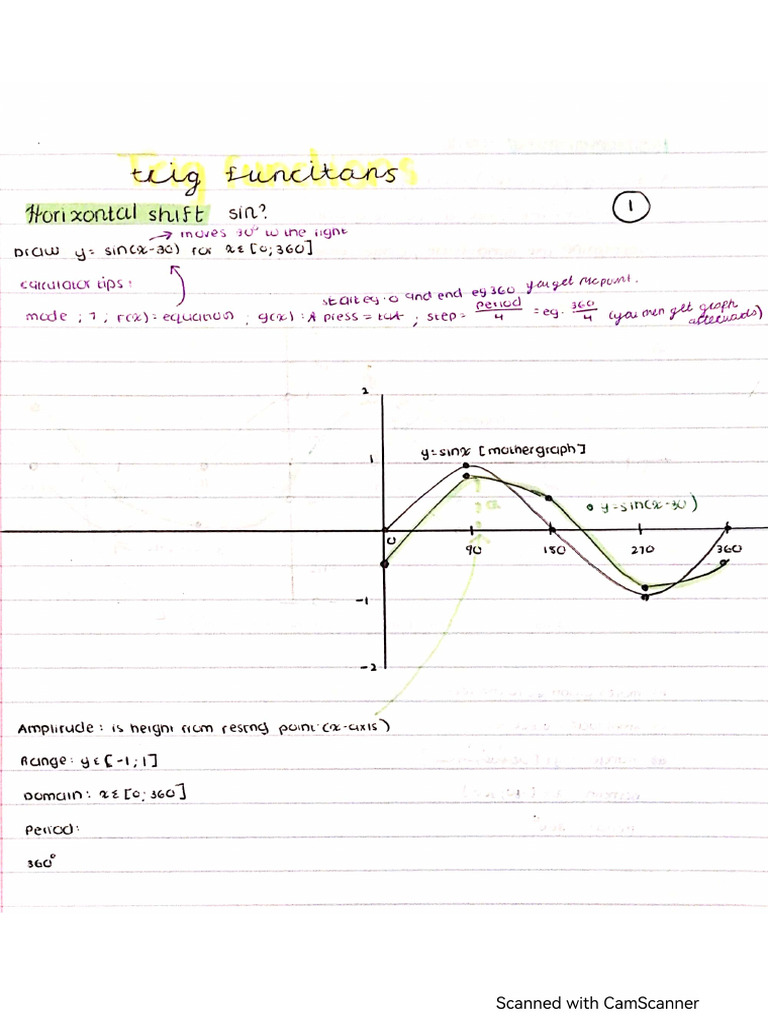 trig funcitans
Horizontal shift sin?
1
→ moves 30° to the right
Draw y = sin(x-30) for x ε [0;360]
calculator tips:
start eg. 0 and end eg 360 you get
mode ; 7 ; f(x) = equation ; g(x) : press = ; step = period/4 = eg. 360/4 (you then get graph afterwards)
2
1
y=sinx [mother graph]
y=sin(x-30)
0
90
180
270
360
-1
-2
Amplitude : is height from resting point (x-axis)
Range: y ε [-1;1]
Domain: x ε [0;360]
Period:
360°
Scanned with CamScanner